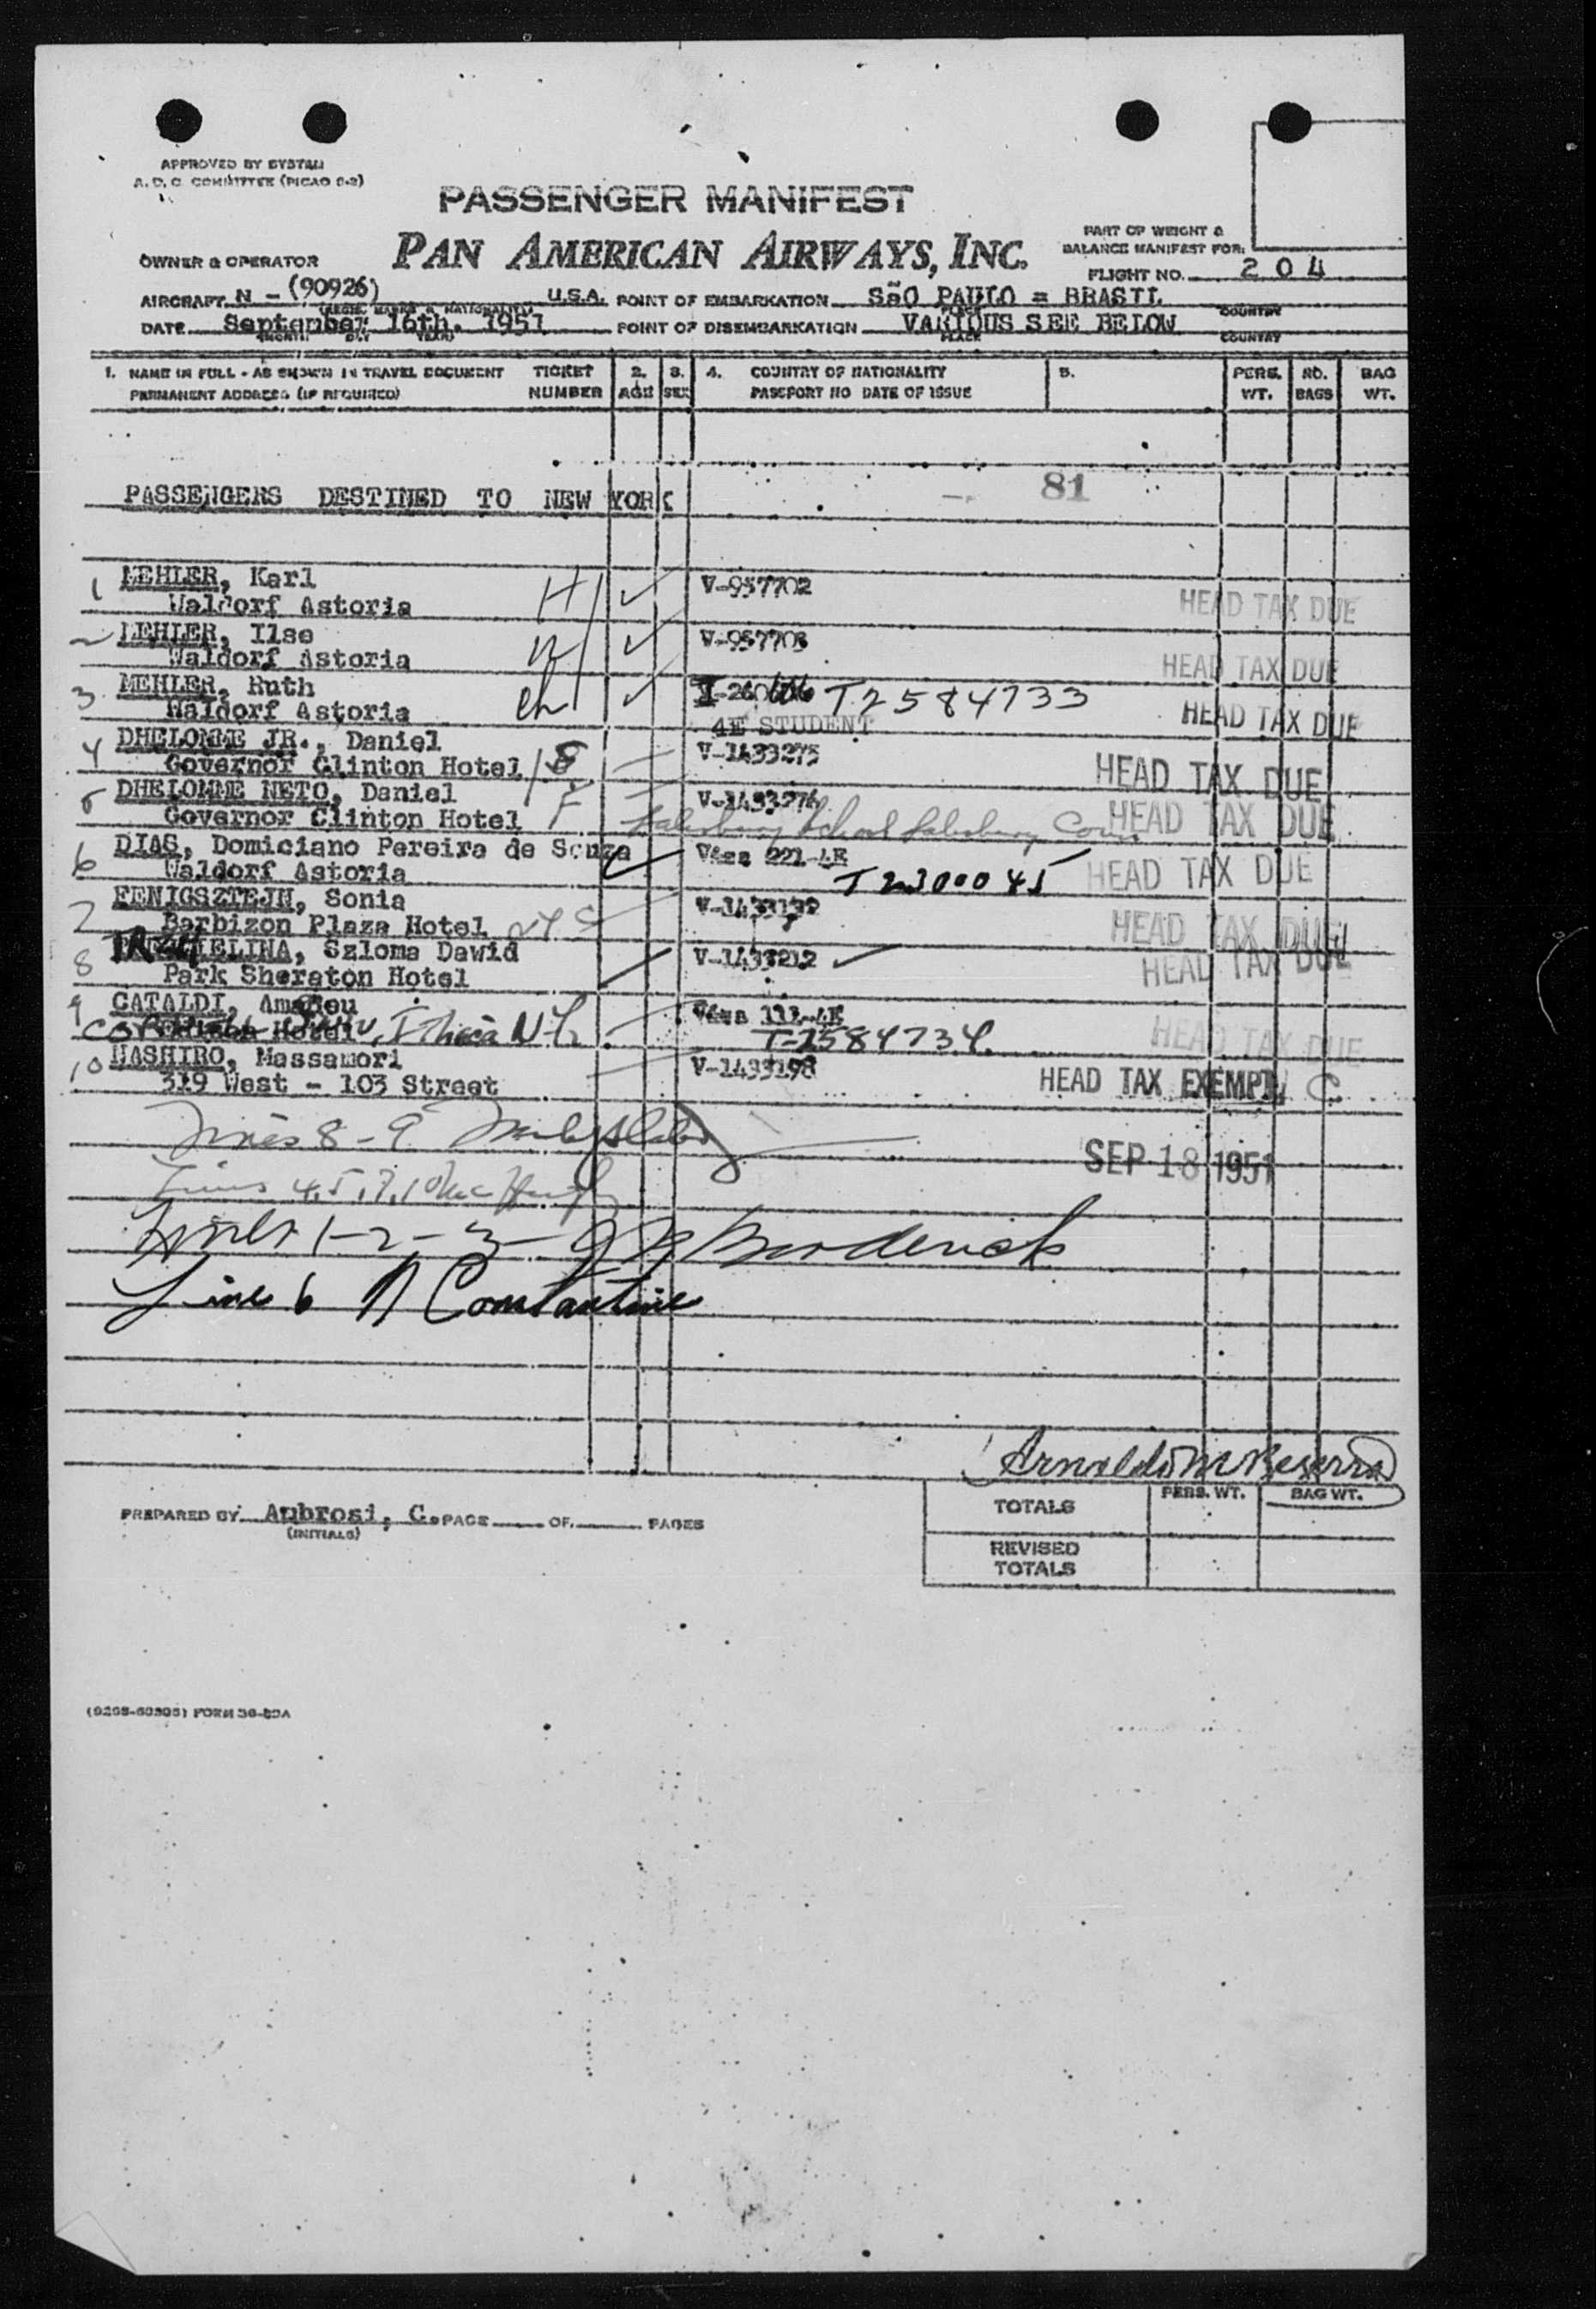 APPROVED BY SYSTEM
A.D.C. COMMITTEE (PICAO 8-2)
PASSENGER MANIFEST
PAN AMERICAN AIRWAYS, INC.
PART OF WEIGHT &
BALANCE MANIFEST FOR:
OWNER & OPERATOR
FLIGHT NO. 204
AIRCRAFT N - (90926) U.S.A. POINT OF EMBARKATION SãO PAULO = BRASIL
(REGIS. MARKS & NATIONALITY) PLACE COUNTRY
DATE September 16th. 1951 POINT OF DISEMBARKATION VARIOUS SEE BELOW
(MONTH DAY YEAR) PLACE COUNTRY
1. NAME IN FULL - AS SHOWN IN TRAVEL DOCUMENT TICKET 2. 3. 4. COUNTRY OF NATIONALITY 5. PERS. NO. BAG
PERMANENT ADDRESS (IF REQUIRED) NUMBER AGE SEX PASSPORT NO DATE OF ISSUE WT. BAGS WT.
PASSENGERS DESTINED TO NEW YORK 81
1 MEHLER, Karl V-957702
Waldorf Astoria H HEAD TAX DUE
2 MEHLER, Ilse V-957703
Waldorf Astoria W HEAD TAX DUE
3 MEHLER, Ruth T2584733
Waldorf Astoria ch HEAD TAX DUE
4E STUDENT
4 DHELOMME JR., Daniel V-1433275
Governor Clinton Hotel HEAD TAX DUE
5 DHELOMME NETO, Daniel V-1433276
Governor Clinton Hotel F Salisbury School Salisbury Conn. HEAD TAX DUE
6 DIAS, Domiciano Pereira de Souza Visa 221-4E
Waldorf Astoria T2300045 HEAD TAX DUE
7 FENIGSZTEJN, Sonia V-1433132
Barbizon Plaza Hotel NYC HEAD TAX DUE
8 MIELINA, Szloma Dawid V-1433212
Park Sheraton Hotel HEAD TAX DUE
9 CATALDI, Amadeu Visa 111-4E
Hotel Ithica N.Y. T-2584734 HEAD TAX DUE
10 NASHIRO, Massamori V-1433198
319 West - 103 Street HEAD TAX EXEMPT C
Lines 8-9
SEP 18 1951
Lines 4,5,7,10
Lines 1-2-3- Broderick
Line 6 N Constantine
Arnaldo M Beserra
PREPARED BY Ambrosi, C. PAGE OF PAGES
(INITIALS)
PERS. WT. BAG WT.
TOTALS
REVISED
TOTALS